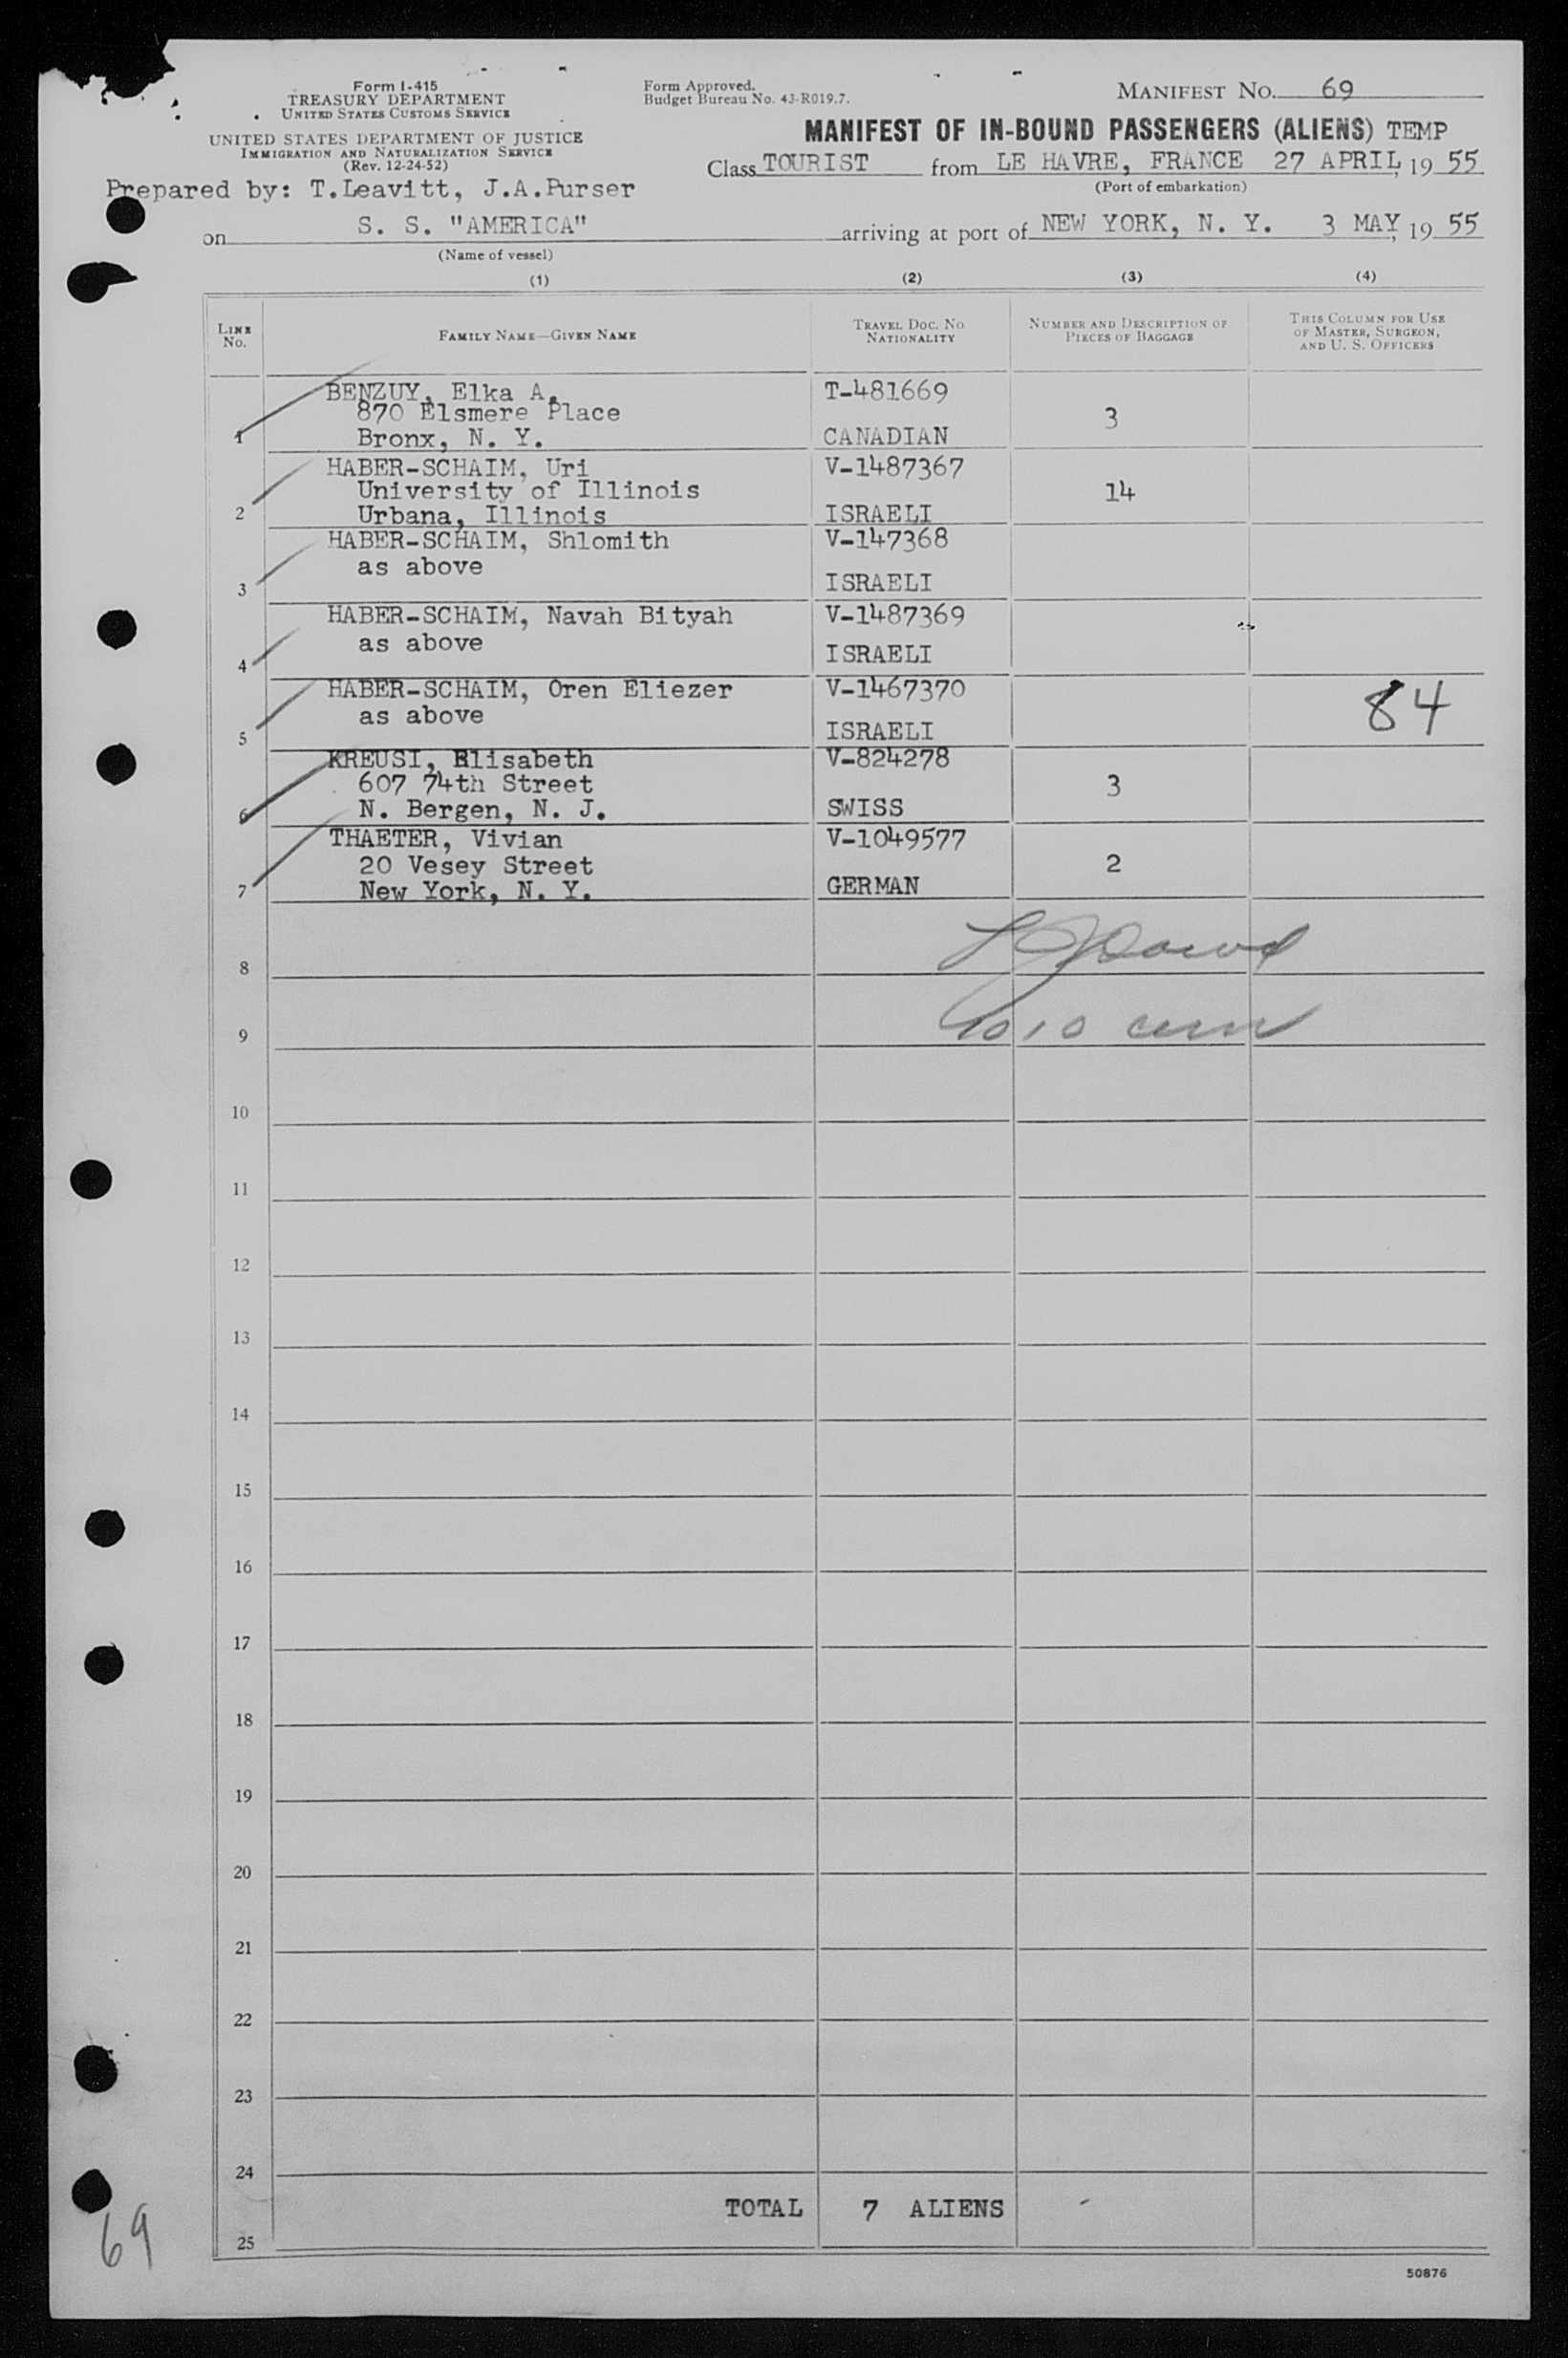 Form I-415
TREASURY DEPARTMENT
UNITED STATES CUSTOMS SERVICE
UNITED STATES DEPARTMENT OF JUSTICE
IMMIGRATION AND NATURALIZATION SERVICE
(Rev. 12-24-52)
Form Approved.
Budget Bureau No. 43-R019.7.
MANIFEST NO. 69
MANIFEST OF IN-BOUND PASSENGERS (ALIENS) TEMP
Class TOURIST from LE HAVRE, FRANCE 27 APRIL, 19 55
(Port of embarkation)
Prepared by: T.Leavitt, J.A.Purser
on S. S. "AMERICA" arriving at port of NEW YORK, N. Y. 3 MAY, 19 55
(Name of vessel)
(1) (2) (3) (4)
LINE No. FAMILY NAME—GIVEN NAME TRAVEL DOC. NO. NATIONALITY NUMBER AND DESCRIPTION OF PIECES OF BAGGAGE THIS COLUMN FOR USE OF MASTER, SURGEON, AND U. S. OFFICERS
BENZUY, Elka A. T-481669
870 Elsmere Place 3
1 Bronx, N. Y. CANADIAN
HABER-SCHAIM, Uri V-1487367
University of Illinois 14
2 Urbana, Illinois ISRAELI
HABER-SCHAIM, Shlomith V-147368
as above
3 ISRAELI
HABER-SCHAIM, Navah Bityah V-1487369
as above
4 ISRAELI
HABER-SCHAIM, Oren Eliezer V-1467370
as above 84
5 ISRAELI
KREUSI, Elisabeth V-824278
607 74th Street 3
6 N. Bergen, N. J. SWISS
THAETER, Vivian V-1049577
20 Vesey Street 2
7 New York, N. Y. GERMAN
8
9
10
11
12
13
14
15
16
17
18
19
20
21
22
23
24
TOTAL 7 ALIENS
25
69
50876